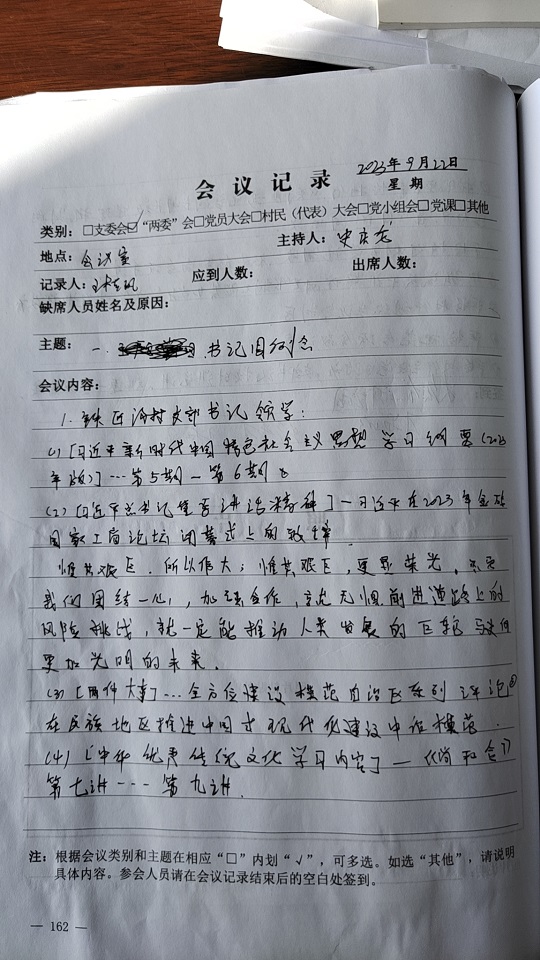 会议记录
2023年9月22日
星期
类别：□支委会☑“两委”会□党员大会□村民（代表）大会□党小组会□党课□其他
地点：会议室 主持人：史庆龙
记录人： 应到人数： 出席人数：
缺席人员姓名及原因：
主题：一. 书记周例会
会议内容：
1. 村支部书记领学：
(1)[习近平新时代中国特色社会主义思想学习纲要(2023
年版)]…第5期-第6期。
(2)[习近平总书记重要讲话精神]—习近平在2023年金砖
国家工商论坛闭幕式上的致辞.
惟其艰巨，所以伟大；惟其艰巨，更显荣光，只要
我们团结一心，加强合作，就无惧前进道路上的
风险挑战，就一定能推动人类发展的巨轮驶向
更加光明的未来.
(3)[两件大事]…全方位建设模范自治区系列评论④
在民族地区推进中国式现代化建设中作模范.
(4)[中华优秀传统文化学习内容]—尚和合
第七讲…第九讲.
注：根据会议类别和主题在相应“□”内划“√”，可多选。如选“其他”，请说明
具体内容。参会人员请在会议记录结束后的空白处签到。
— 162 —